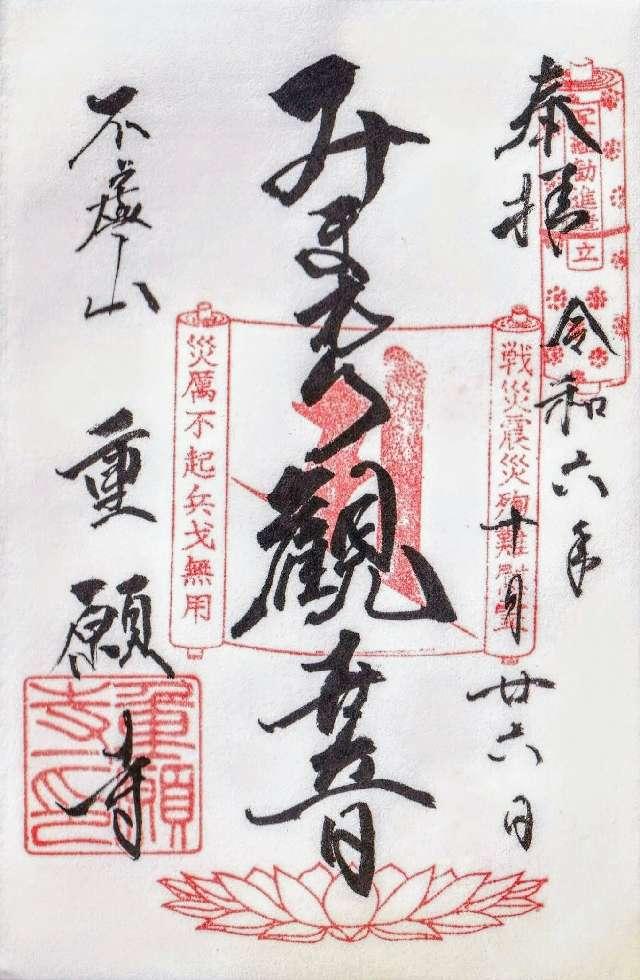 奉拝
令和六年
十月廿六日
戦災震災殉難慰霊
みまもり觀世音
災厲不起兵戈無用
不虚山
重願寺
重願寺印